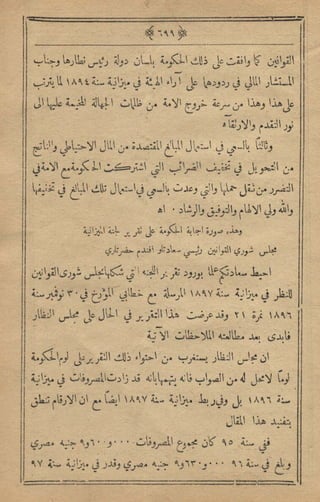 ﴿ ٦٩٩ ﴾
القوانين كما وافقت على ذلك الحكومة بلسان دولة رئيس نظارها وجناب
المستشار المالي في ردودهما على آراء الهيئة في ميزانية سنة ١٨٩٤ لما يترتب
على هذا وهذا من سرعة خروج الامة من ظلمات الجهالة المخيمة عليها الى
نور التقدم والارتقاء
وثالثًا بالسعي في استعمال المبالغ المقتصدة من المال الاحتياطي والناتج
من التحويل في تخفيف الضرائب التي اشتركت الحكومة مع الامة في
التضرر من ثقل حملها والتي وعدت بالسعي في استعمال تلك المبالغ في تخفيفها
والله ولي الالهام والتوفيق والرشاد ٠ اه
وهذه صورة اجابة الحكومة على تقرير لجنة الميزانية
مجلس شوري القوانين رئيسي سعادتلو افندم حضرتلري
احيط سعادتكم علما بورود تقرير اللجنه التي شكلها مجلس شورى القوانين
للنظر في ميزانية سنة ١٨٩٧ المرسلة مع خطابي المؤرخ في ٣٠ نوفمبر سنة
١٨٩٦ نمرة ٢١ وقد عرضت هذا التقرير في الحال على مجلس النظار
فابدى بعد مطالعته الملاحظات الآتية
ان مجلس النظار يستغرب من احتواء ذلك التقرير على لوم الحكومة
لومًا لا محل له من الصواب فانه يتهمها بانه قد زادت المصروفات في ميزانية
سنة ١٨٩٦ بل وفي ربط ميزانية سنة ١٨٩٧ ايضًا مع ان الارقام تنطق
بتفنيد هذا المقال
ففي سنة ٩٥ كان مجموع المصروفات ٠٠٠و٦٠٠و٩ جنيه مصري
وبلغ في سنة ٩٦ ٠٠٠و٦٣٠و٩ جنيه مصري وقدر في ميزانية سنة ٩٧